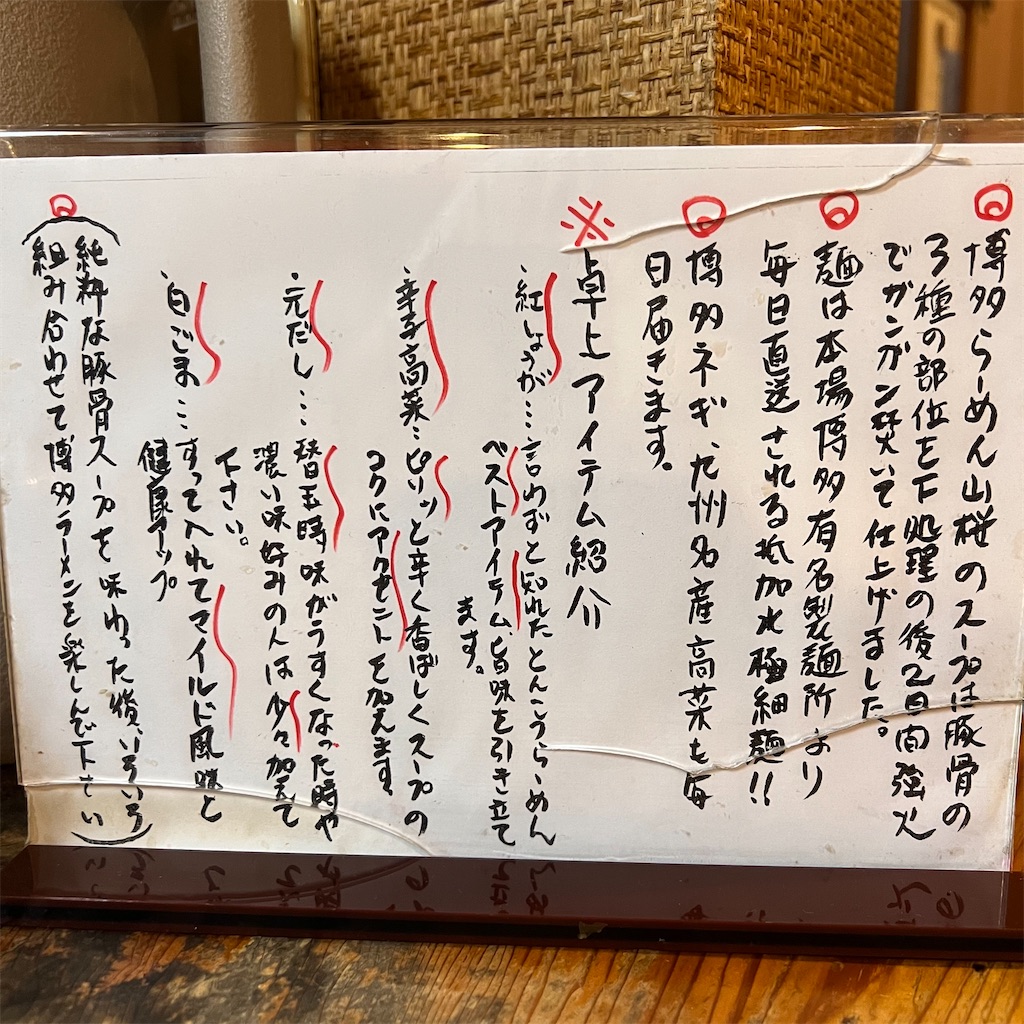 博多らーめん山桜のスープは豚骨の
3種の部位を下処理の後2日間強火
でガンガン焚いて仕上げました。
麺は本場博多有名製麺所より
毎日直送される低加水極細麺!!
博多ネギ、九州名産高菜も毎
日届きます。
※卓上アイテム紹介
・紅しょうが…言わずと知れたとんこつらーめん
ベストアイテム、旨味を引き立て
ます。
・辛子高菜…ピリッと辛く香ばしくスープの
コクにアクセントを加えます
・元だし…替玉時、味がうすくなった時や
濃い味好みの人は少々加えて
下さい。
・白ごま…すって入れてマイルド風味と
健康アップ
(純粋な豚骨スープを味わった後、いろいろ
組み合わせて博多ラーメンを楽しんで下さい)